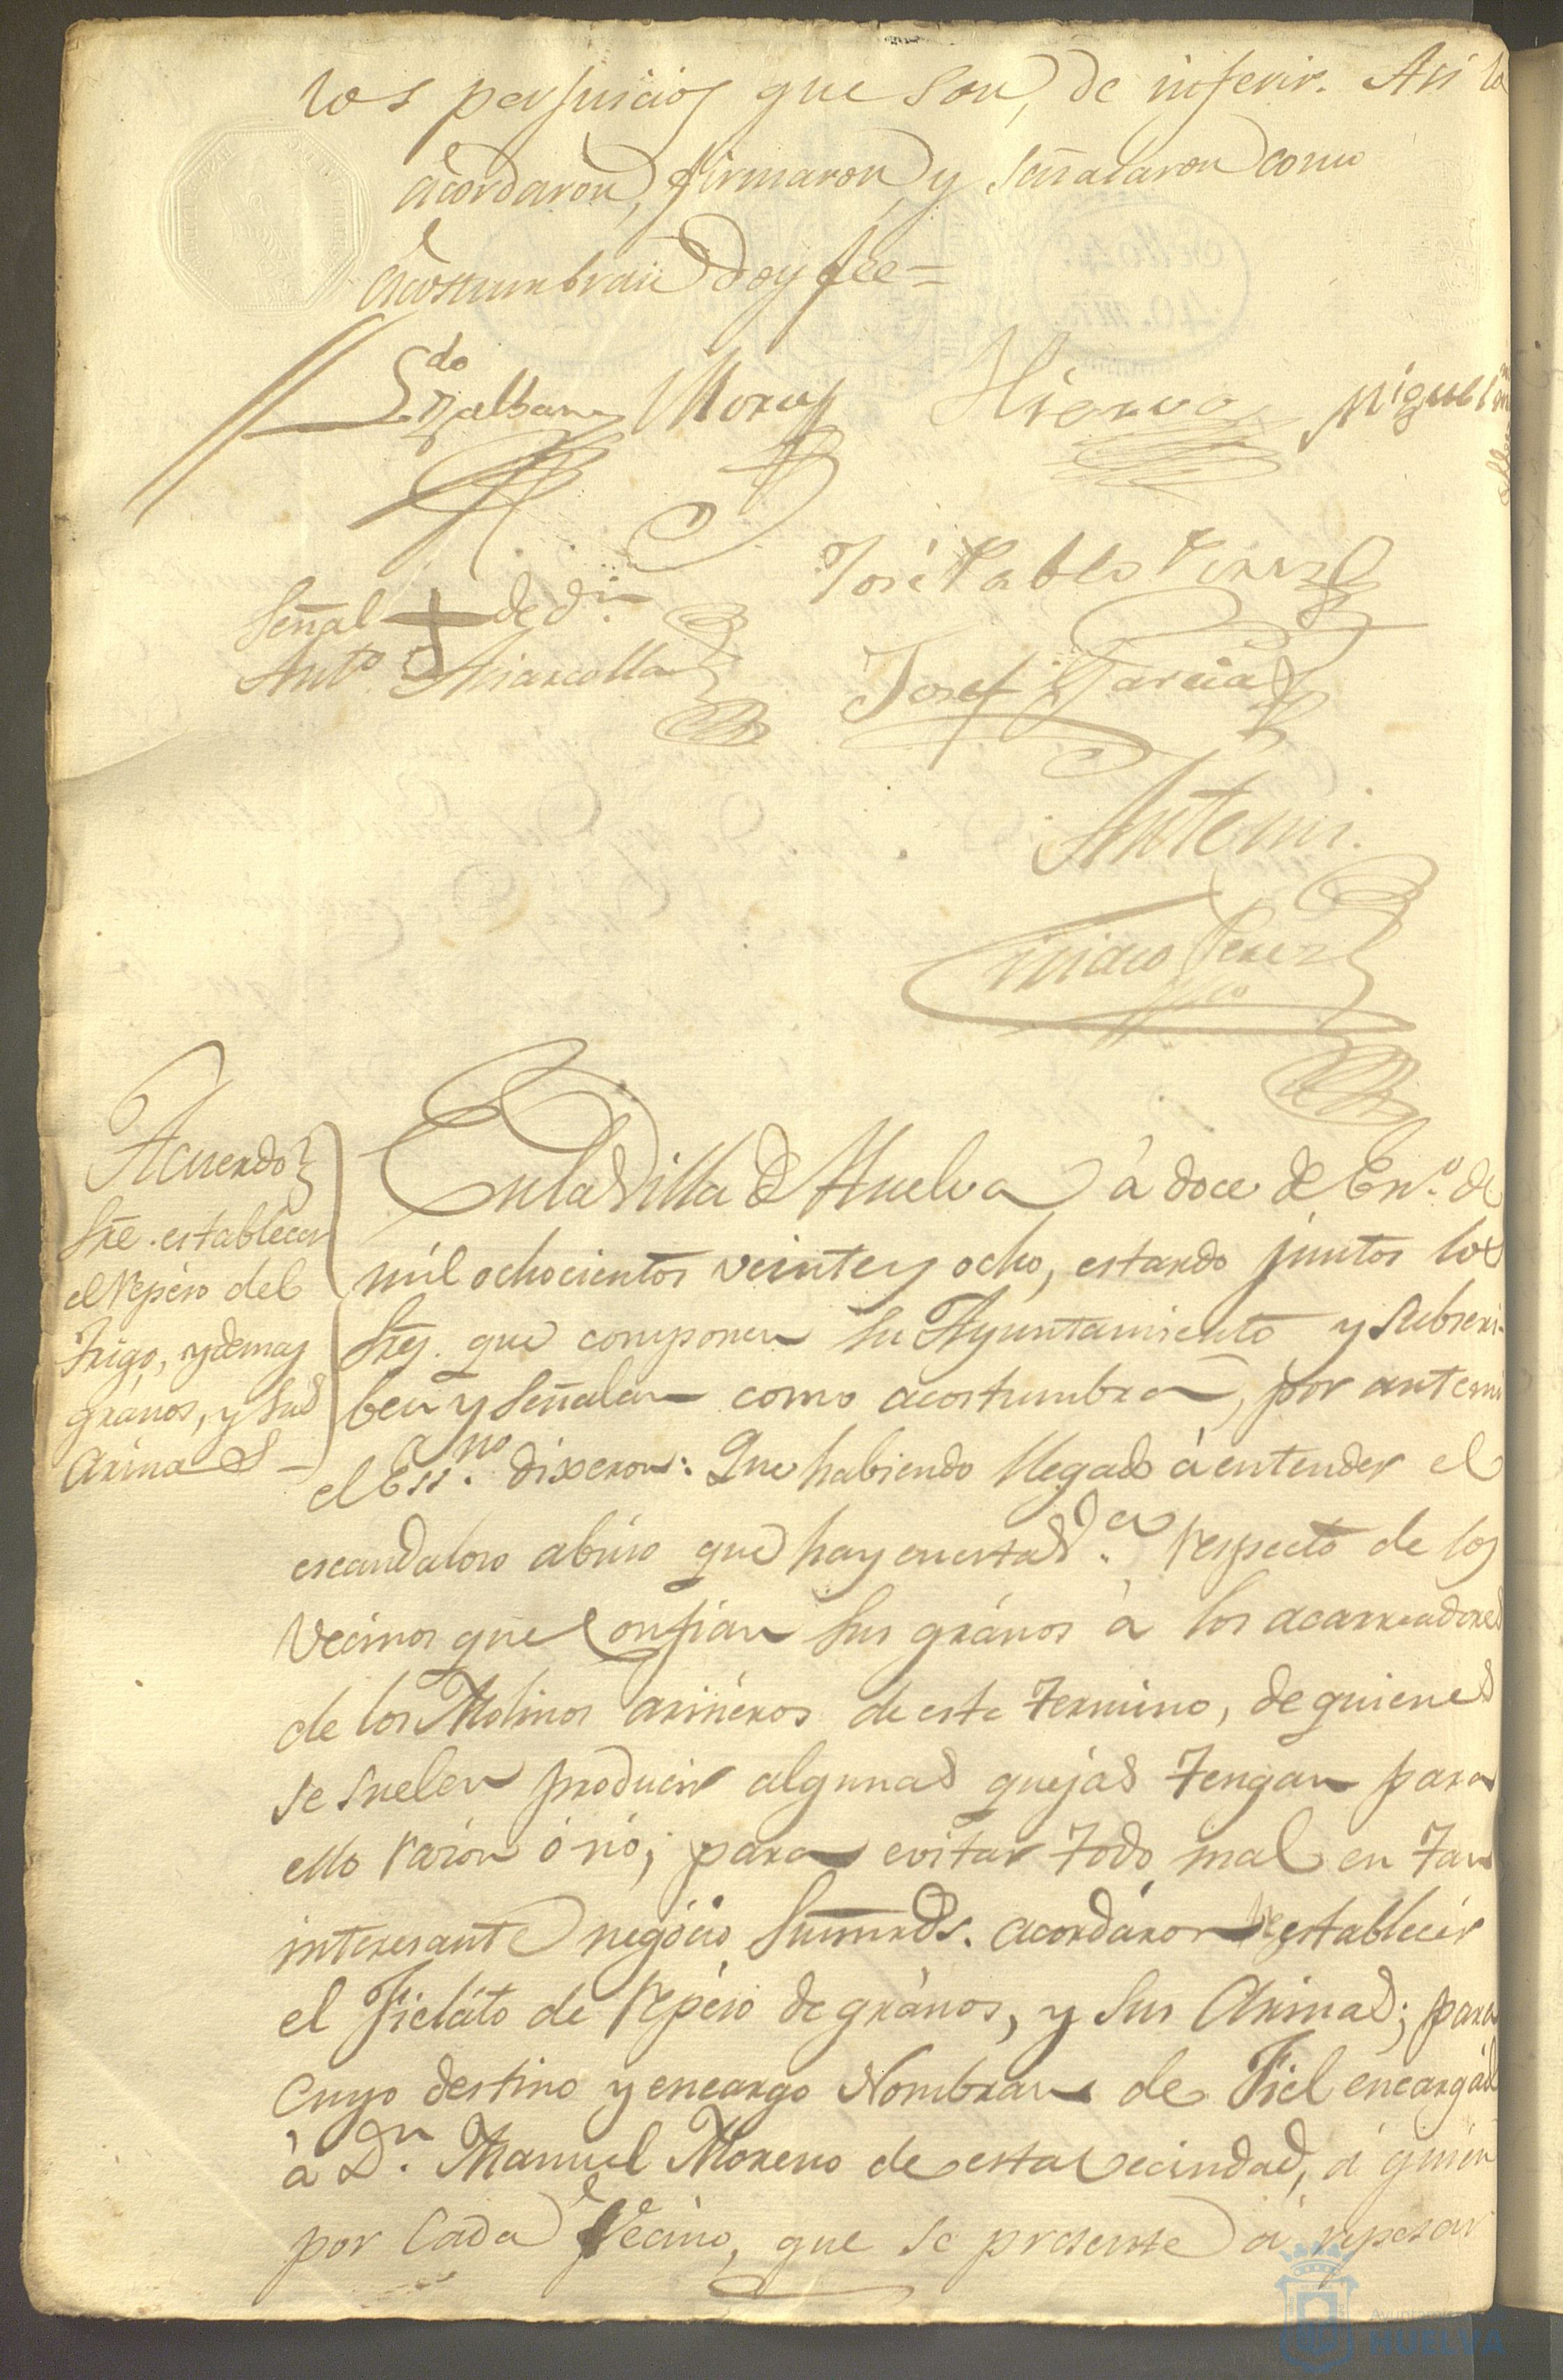 los perjuicios que son, de inferir. Asi lo
acordaron, firmaron, y señalaron como
acostumbran doy fee=
Ldo Malbany Moras Hierro Miguel
José Pablo Perez
Señal + de dn
Anto Josef Garcia
Antemi.
Perez
Acuerdo
Sre. establecer
el repéso del
Trigo, y demas
grános, y sus
Arinas
En la Villa de Huelva à doce de Eno. de
mil ochocientos veinte y ocho, estando juntos los
Sres. que componen su Ayuntamiento y subscri-
ben y señalan como acostumbran, por antemi
el Essno. dixeron: Que habiendo llegado à entender el
escandaloso abuso que hay en esta Va. respecto de los
Vecinos que confian sus grános à los acarreadores
de los Molinos arinéros de este termino, de quienes
se suelen producir algunas quejas tengan para
ello razon ó nó; para evitar todo mal en tan
interesante negócio Sus mrds. acordáron restablecer
el Fieláto de repéso de grános, y sus Arinas; para
cuyo destino y encargo Nombran de Fiel encargado
à Dn. Manuel Moreno de esta Vecindad, á quien
por cada Vecino, que se presente á repesar
Ayuntamiento
HUELVA